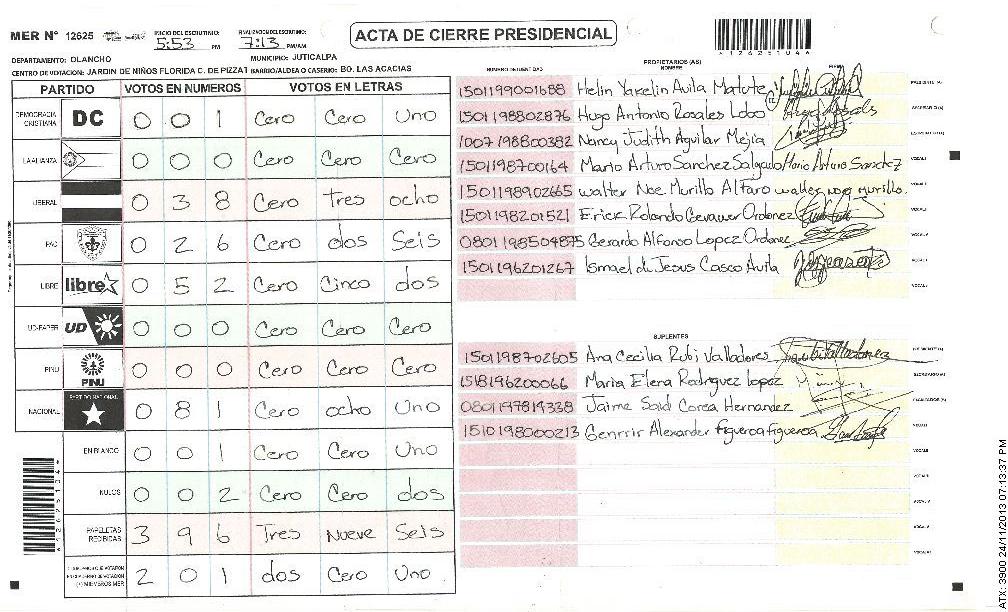 MER N° 12625 INICIO DEL ESCRUTINIO: 5:53 PM FINALIZACION DEL ESCRUTINIO: 7:13 PM/AM
ACTA DE CIERRE PRESIDENCIAL
*12625104*
DEPARTAMENTO: OLANCHO MUNICIPIO: JUTICALPA
CENTRO DE VOTACION: JARDIN DE NIÑOS FLORIDA C. DE PIZZAT BARRIO/ALDEA O CASERIO: BO. LAS ACACIAS
PARTIDO VOTOS EN NUMEROS VOTOS EN LETRAS
DEMOCRACIA CRISTIANA DC 0 0 1 Cero Cero Uno
LA ALIANZA 0 0 0 Cero Cero Cero
LIBERAL 0 3 8 Cero Tres ocho
PAC 0 2 6 Cero dos Seis
LIBRE libre 0 5 2 Cero Cinco dos
UD-FAPER UD 0 0 0 Cero Cero Cero
PINU PINU 0 0 0 Cero Cero Cero
NACIONAL PARTIDO NACIONAL 0 8 1 Cero ocho Uno
EN BLANCO 0 0 1 Cero Cero Uno
NULOS 0 0 2 Cero Cero dos
PAPELETAS RECIBIDAS 3 9 6 Tres Nueve Seis
CIUDADANOS QUE VOTARON EN CUADERNO DE VOTACION (+) MIEMBROS MER 2 0 1 dos Cero Uno
PROPIETARIOS (AS)
NUMERO DE IDENTIDAD NOMBRE FIRMA
1501199001688 Helin Yakelin Avila Matute PRESIDENTE (A)
1501198802876 Hugo Antonio Rosales Lobo SECRETARIO (A)
1007198800382 Nancy Judith Aguilar Mejia ESCRUTADOR (A)
1501198700164 Mario Arturo Sanchez Salgado Mario Arturo Sanchez VOCAL I
1501198902665 Walter Noe Murillo Alfaro walter noe Murillo. VOCAL II
1501198201521 Erick Rolando Ordonez
0801198504875 Gerardo Alfonso Lopez Ordonez
1501196201267 Ismael de Jesus Casco Avila
SUPLENTES
1501198702605 Ana Cecilia Rubi Valladores PRESIDENTE (A)
1518196200066 Maria Elena Rodriguez Lopez SECRETARIO (A)
0801197814338 Jaime Said Corea Hernandez ESCRUTADOR (A)
1510198000213 Genrrir Alexander Figueroa Figueroa VOCAL I
ATX: 3900 24/11/2013 07:13:37 PM